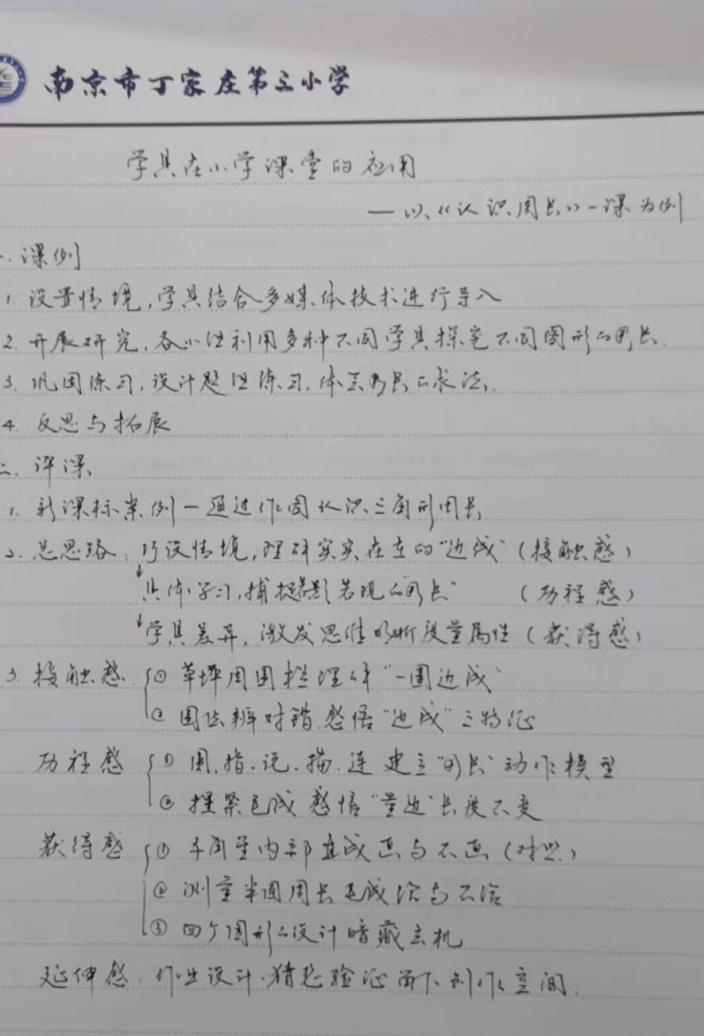 南京市丁家庄第三小学
学具在小学课堂的应用
——以《认识周长》一课为例
一.课例
1.设置情境,学具结合多媒体技术进行导入
2.开展研究,各小组利用多种不同学具探究不同图形的周长.
3.巩固练习,设计题组练习.体会周长的求法.
4.反思与拓展
二.评课
1.新课标案例一通过作图认识三角形周长
2.总思路:巧设情境,理解实实在在的"边线"(接触感)
↓具体学习,捕捉若影若现的"周长"(历程感)
↓学具差异,激发思维明晰度量属性(获得感)
3.接触感 ①草坪周围拦理解"一圈边线"
②图位辨对错感悟"边线"之特征
历程感 ①围.指.说.描.连 建立"周长"动作模型
②捏紧毛线感悟"量边"长度不变
获得感 ①平角里内部直线画与不画(对照)
②测量半圆周长毛线给与不给
③四个图形的设计暗藏玄机
延伸感 作业设计.猜想验证留下创作空间.